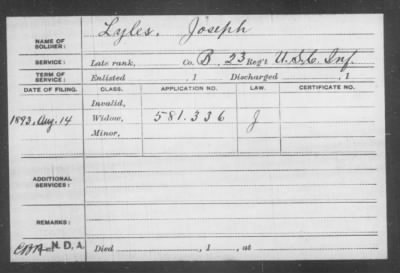 NAME OF SOLDIER: Lyles, Joseph
SERVICE: Late rank, Co. B, 23 Reg't U.S.C. Inf.
TERM OF SERVICE: Enlisted , 1 Discharged , 1
DATE OF FILING. CLASS. APPLICATION NO. LAW. CERTIFICATE NO.
Invalid,
1893, Aug. 14 Widow, 581.336 J
Minor,
ADDITIONAL SERVICES:
REMARKS:
N. D. A. Died , 1 , at